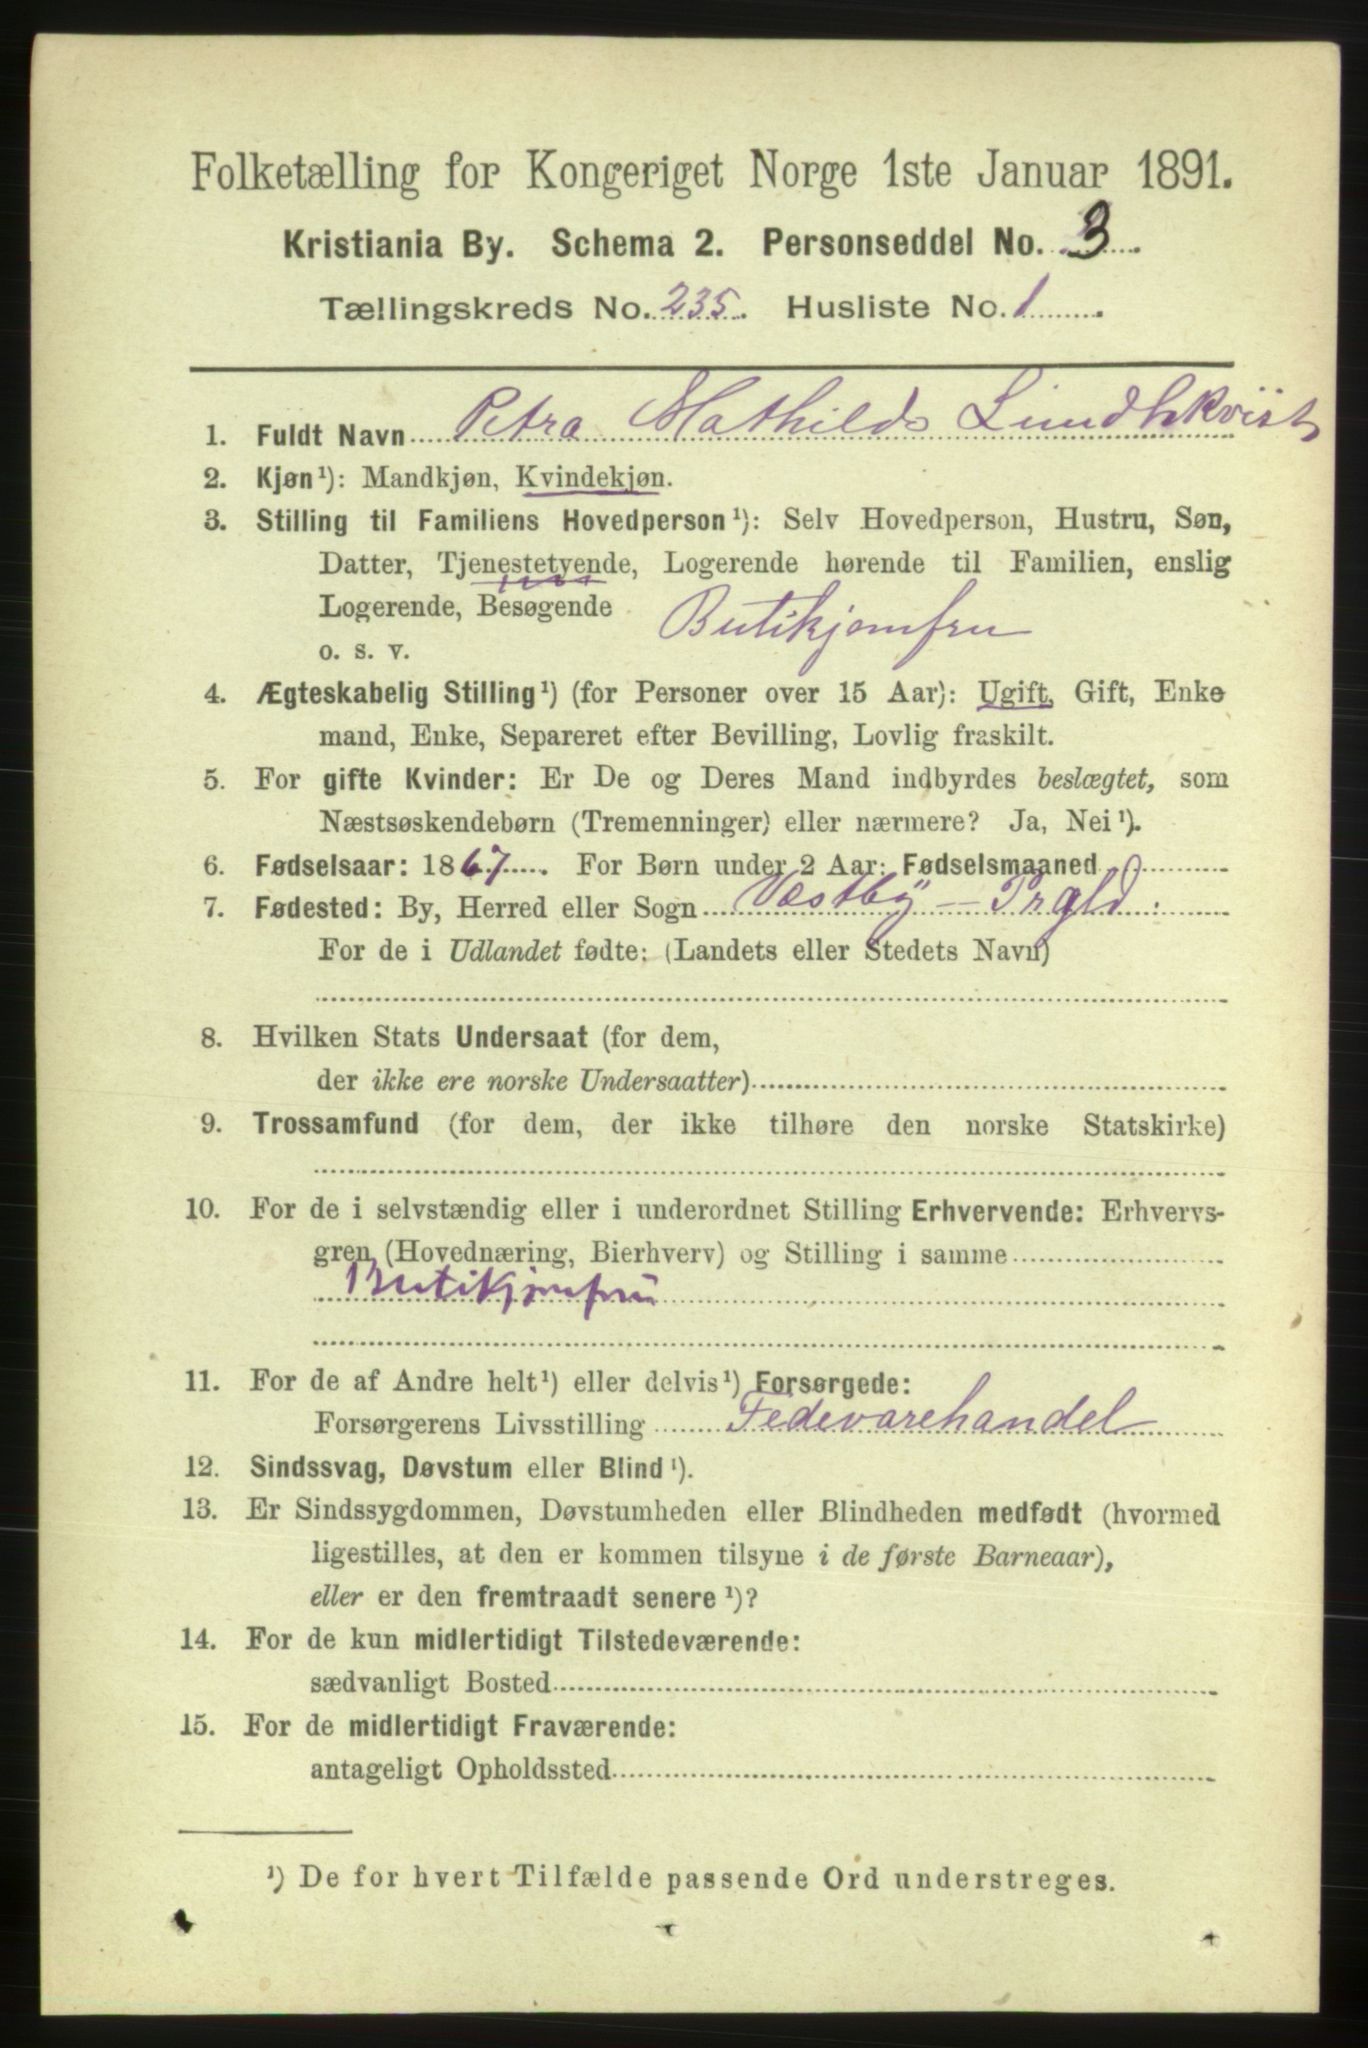 Folketælling for Kongeriget Norge 1ste Januar 1891.
Kristiania By. Schema 2. Personseddel No. 3.
Tællingskreds No. 235. Husliste No. 1.
1. Fuldt Navn Petra Mathilde Lundhkvist
2. Kjøn¹): Mandkjøn, Kvindekjøn.
3. Stilling til Familiens Hovedperson¹): Selv Hovedperson, Hustru, Søn,
Datter, Tjenestetyende, Logerende hørende til Familien, enslig
Logerende, Besøgende Butikjomfru
o. s. v.
4. Ægteskabelig Stilling¹) (for Personer over 15 Aar): Ugift, Gift, Enke
mand, Enke, Separeret efter Bevilling, Lovlig fraskilt.
5. For gifte Kvinder: Er De og Deres Mand indbyrdes beslægtet, som
Næstsøskendebørn (Tremenninger) eller nærmere? Ja, Nei¹).
6. Fødselsaar: 1867. For Børn under 2 Aar: Fødselsmaaned
7. Fødested: By, Herred eller Sogn Vestby — Prgld.
For de i Udlandet fødte: (Landets eller Stedets Navn)
8. Hvilken Stats Undersaat (for dem,
der ikke ere norske Undersaatter)
9. Trossamfund (for dem, der ikke tilhøre den norske Statskirke)
10. For de i selvstændig eller i underordnet Stilling Erhvervende: Erhvervs-
gren (Hovednæring, Bierhverv) og Stilling i samme
Butikjomfru
11. For de af Andre helt¹) eller delvis¹) Forsørgede:
Forsørgerens Livsstilling Fedevarehandel
12. Sindssvag, Døvstum eller Blind¹).
13. Er Sindssygdommen, Døvstumheden eller Blindheden medfødt (hvormed
ligestilles, at den er kommen tilsyne i de første Barneaar),
eller er den fremtraadt senere¹)?
14. For de kun midlertidigt Tilstedeværende:
sædvanligt Bosted
15. For de midlertidigt Fraværende:
antageligt Opholdssted
¹) De for hvert Tilfælde passende Ord understreges.